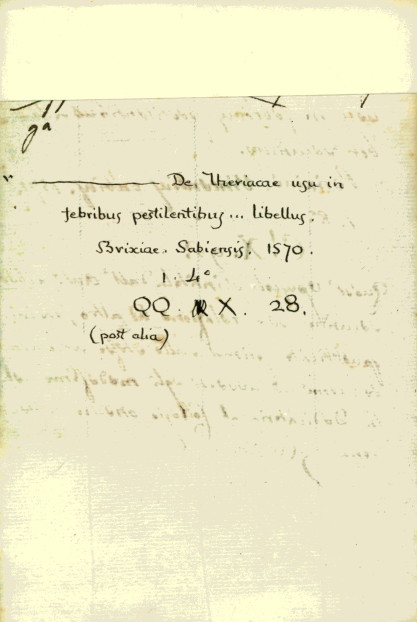 ga
——— De Theriacae usu in
febribus pestilentibus ... libellus.
Brixiae. Sabiensis. 1570.
1. 4°
QQ X. 28.
(post alia)